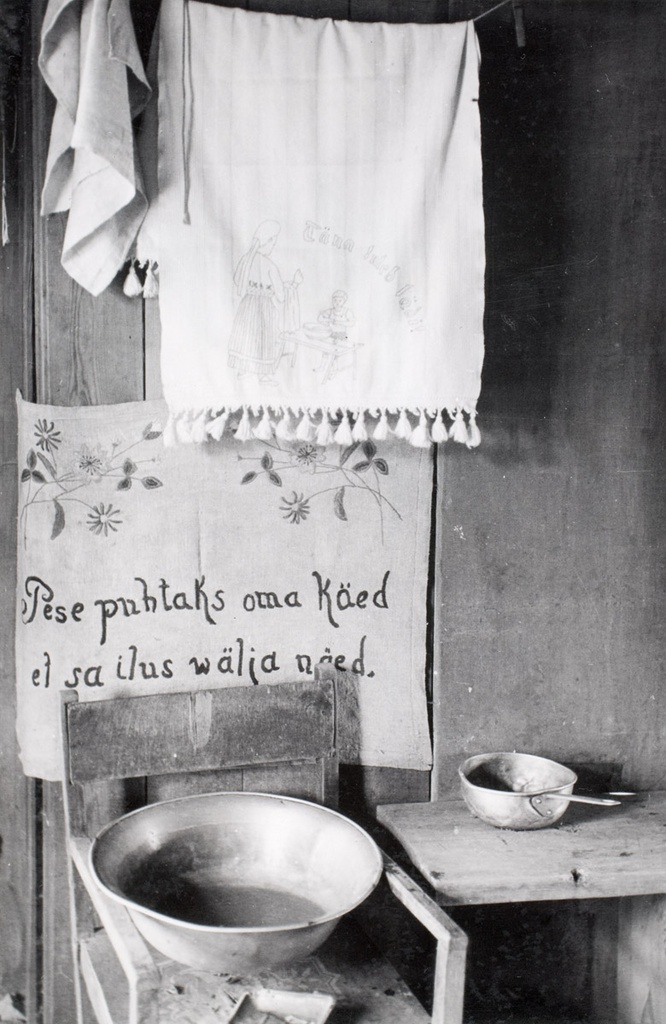 Täna
Pese puhtaks oma käed
et sa ilus wälja näed.